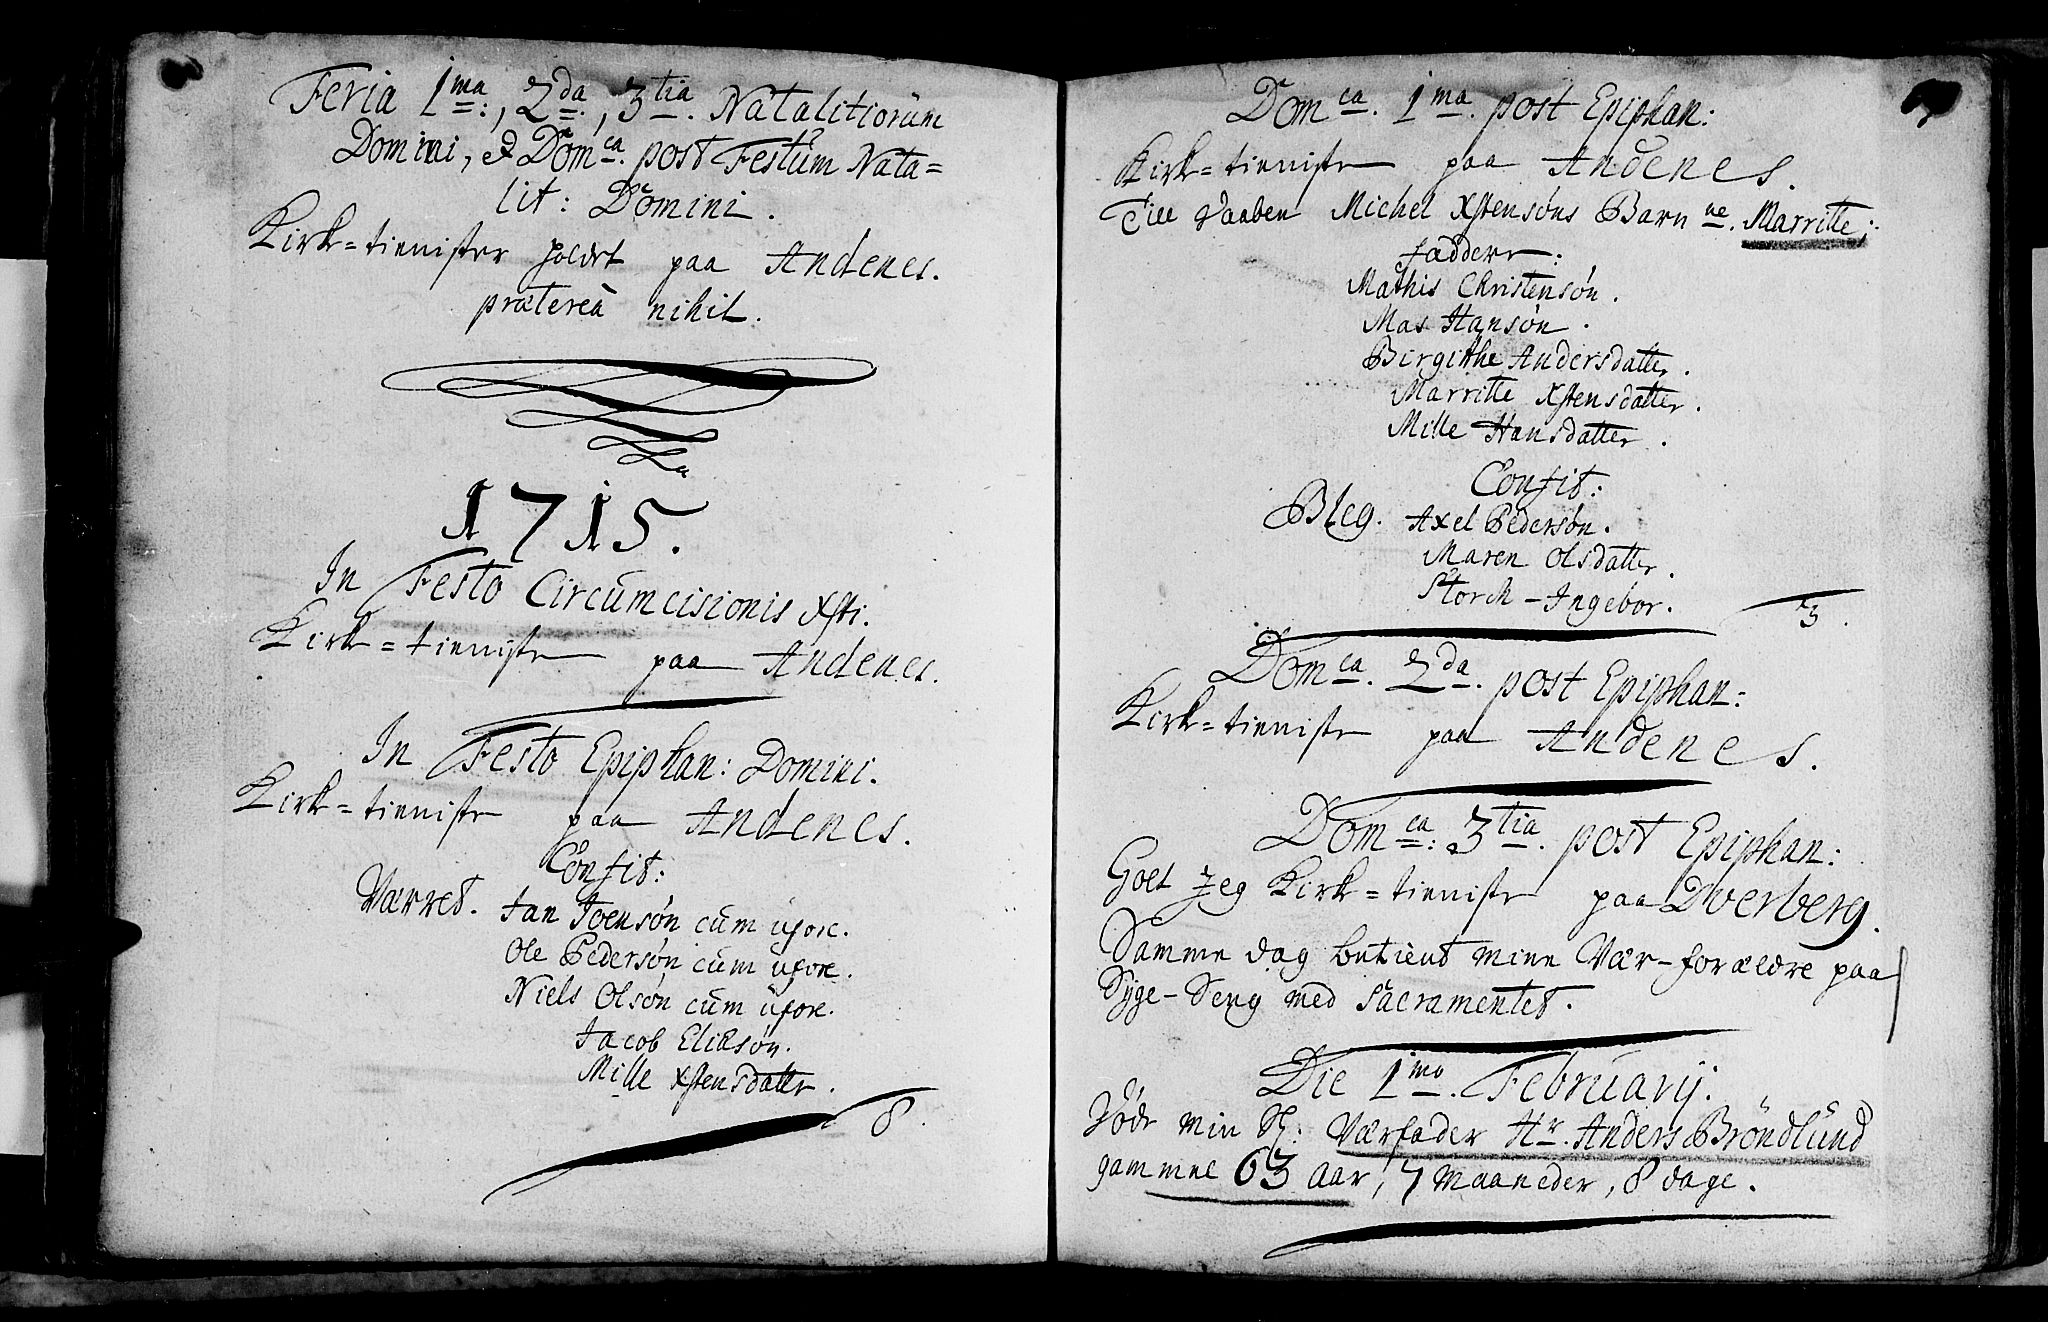 Feria 1ma:, 2da., 3tia. Natalitiorum
Domini, et Domca. post Festum Nata=
lit: Domini.
Kirk=tienister holdet paa Andenes.
prætereà nihil.
1715.
In Festo Circumcisionis Xsti.
Kirk=tieniste paa Andenes.
In Festo Epiphan: Domini.
Kirk=tieniste paa Andenes.
Confit:
Værret. Jan Joensøn cum uxore.
Ole Pedersøn cum uxore.
Niels Olsøn cum uxore.
Jacob Eliesøn.
Mille Xstensdatter.
8.
Domca. 1ma. post Epiphan:
Kirk=tieniste paa Andenes.
Till daaben Michel Xstensøns Barn ne. Marritte;
faddere:
Mathis Christensøn.
Mas Hansøn.
Birgitthe Andersdatter.
Marritte Xstensdatter.
Mille Hansdatter.
Confit:
Bleg. Axel Pedersøn.
Maren Olsdatter.
Storch-Ingebor.
3.
Domca. 2da. post Epiphan:
Kirk=tieniste paa Andenes.
Domca: 3tia. post Epiphan:
Holt Jeg Kirk=tieniste paa Dverberg.
Samme dag betient mine Vær-forældre paa
Syge-Seng med Sacramentet.
Die 1mo. February:
Døde min Sl: Værfader Hr. Anders Brøndlund
gammel 63 aar, 7 maaneder, 8 dage.